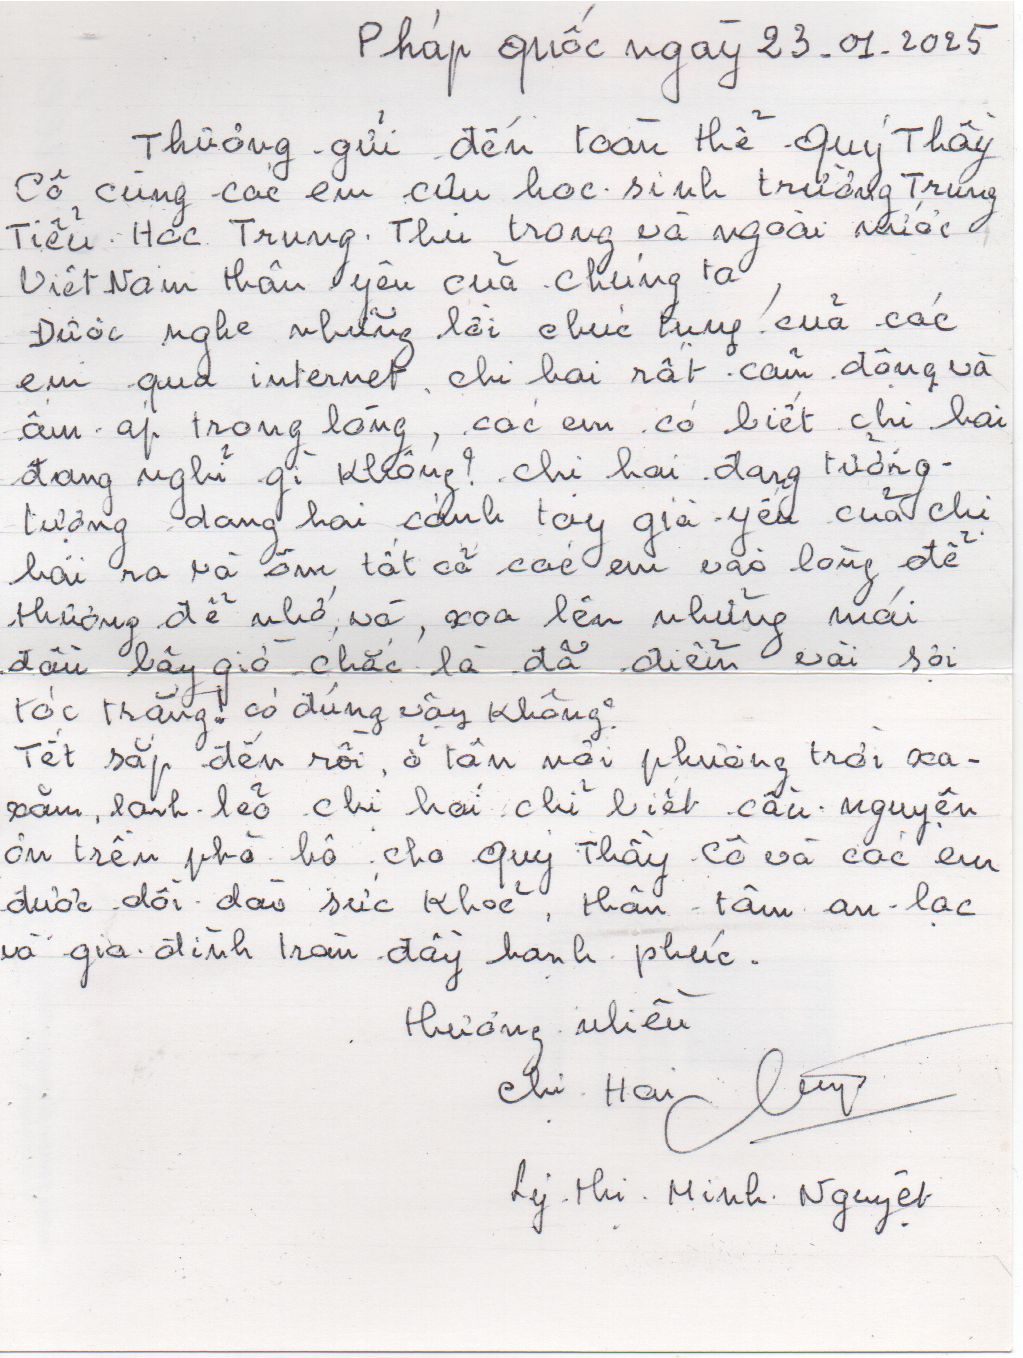 Pháp quốc ngày 23-01-2025
Thương gửi đến toàn thể Quý Thầy
Cô cùng các em cựu học sinh trường Trung
Tiểu Học Trung Thu trong và ngoài nước
Việt Nam thân yêu của chúng ta,
Được nghe những lời chúc tụng của các
em qua internet, chị hai rất cảm động và
ấm áp trong lòng, các em có biết chị hai
đang nghĩ gì không? chị hai đang tưởng-
tượng dang hai cánh tay già yếu của chị
hai ra và ôm tất cả các em vào lòng để
thương để nhớ, và, xoa lên những mái
đầu bây giờ chắc là đã điểm vài sợi
tóc trắng! có đúng vậy không?
Tết sắp đến rồi, ở tận nơi phương trời xa-
xăm, lạnh lẽo chị hai chỉ biết cầu nguyện
ơn trên phò hộ cho Quý Thầy Cô và các em
được dồi dào sức khoẻ, thân tâm an lạc
và gia đình tràn đầy hạnh phúc.
thương nhiều
chị Hai
Lý thị Minh Nguyệt